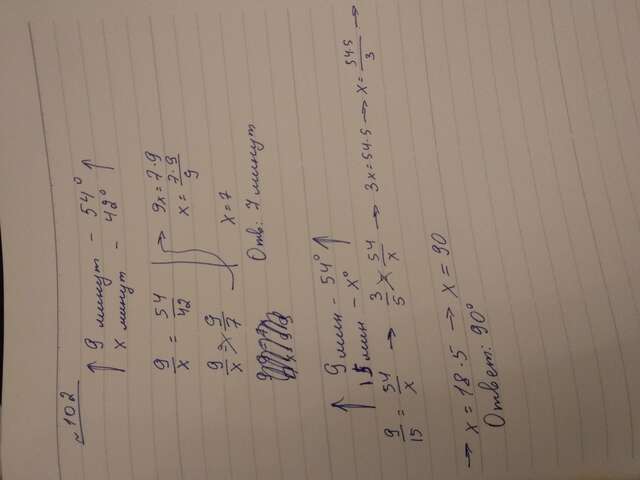 №102
↑ 9 минут - 54° ↑
х минут - 42°
9/x = 54/42
9/x = 9/7
9x = 7·9
x = 7·9/9
x = 7
Отв: 7 минут
↑ 9 мин - 54° ↑
15 мин - x°
9/15 = 54/x → 3/5 = 54/x → 3x = 54·5 → x = 54·5/3 →
→ x = 18·5 → x = 90
Ответ: 90°